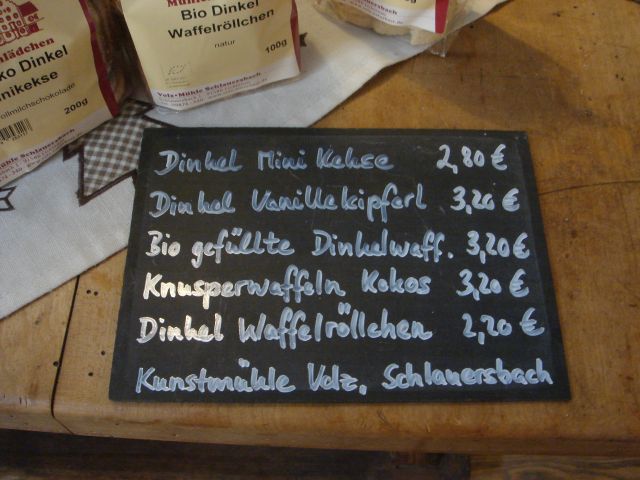 Mühlenlädchen
ko Dinkel
inikekse
ollmilchschokolade
200g
Bio Dinkel
Waffelröllchen
natur
100g
Volz-Mühle Schlauersbach
Dinkel Mini Kekse 2,80 €
Dinkel Vanillekipferl 3,20 €
Bio gefüllte Dinkelwaff. 3,20 €
Knusperwaffeln Kokos 3,20 €
Dinkel Waffelröllchen 2,20 €
Kunstmühle Volz, Schlauersbach